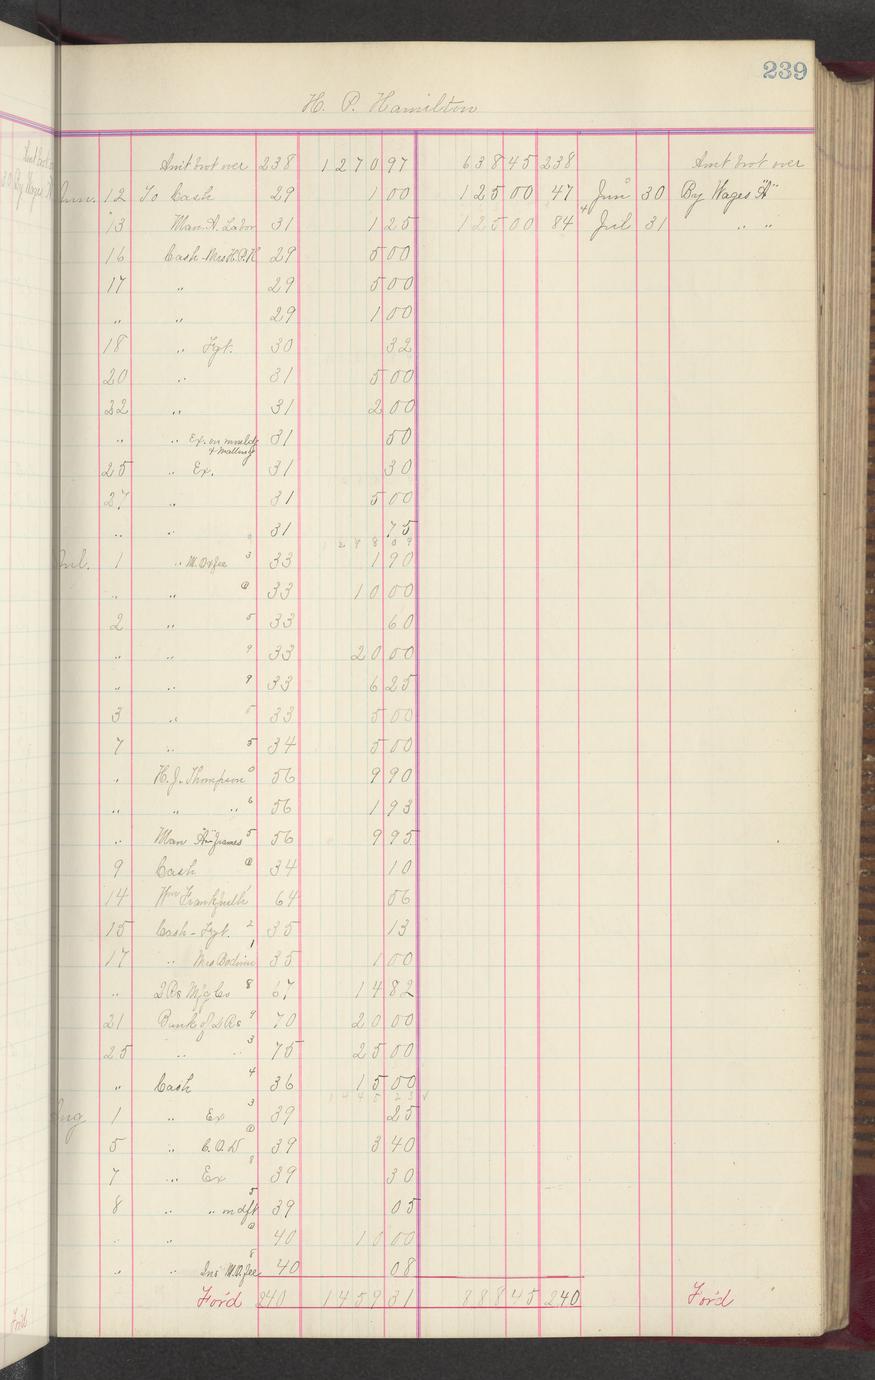 239
H. P. Hamilton
Amt brot over 238 1270 97 638 45 238 Amt brot over
Jun. 12 To Cash 29 1 00 125 00 47 Jun 30 By Wages "A"
13 Man. A. Labor 31 1 25 125 00 84 Jul 31 " "
16 Cash - Mrs H.P.H 29 5 00
17 " 29 5 00
" " 29 1 00
18 " Fgt. 30 32
20 " 31 5 00
22 " 31 2 00
" " Ex. on moulds 31 50
25 " Ex. 31 30
27 " 31 5 00
" " 31 75
Jul. 1 " M. O. & fee 3 33 1 90
" " 33 10 00
2 " 5 33 60
" " 9 33 20 00
" " 9 33 6 25
3 " 33 5 00
7 " 5 34 5 00
" H. J. Thompson 0 56 9 90
" " " 6 56 1 93
" Man "A" frames 5 56 9 95
9 Cash 34 10
14 Wm Frankfurth 64 56
15 Cash - Fgt. 2 35 13
17 " Mrs Bodwin 1 35 1 00
" 2 Rs Mfg Co 8 67 14 82
21 Bank of 2 Rs 9 70 20 00
25 " " 3 75 25 00
" Cash 4 36 15 00
1445 23 √
Aug 1 " Ex 3 39 25
5 " C.O.D 39 3 40
7 " Ex 39 30
8 " " 5 39 05
" " 40 10 00
" " M.O. fee 8 40 08
For'd 240 1459 31 888 45 240 For'd